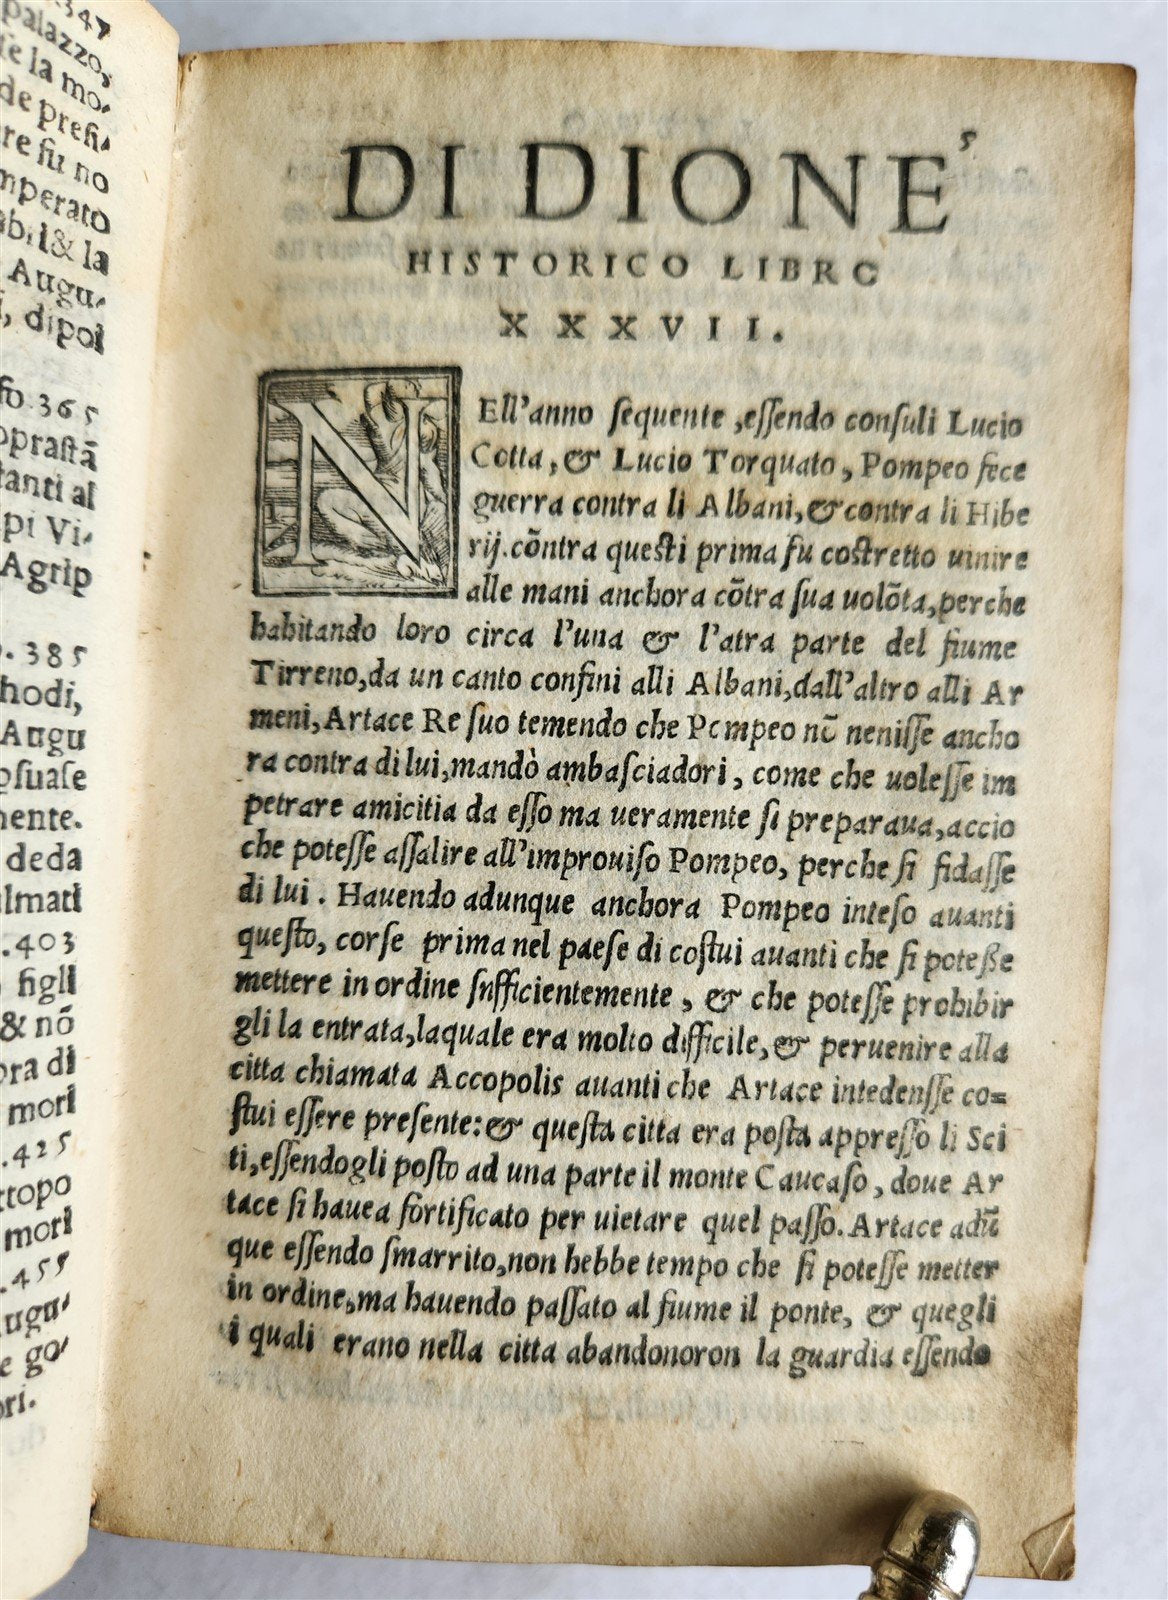 .347
palazzo,
se la mo-
de presi-
re fu no
mperato
abil& la
Augu-
, dipoi
fo.365
oprastā
tanti al
pi Vi-
Agrip
.385
hodi,
Augu
osuase
mente.
deda
almati
.403
figli
& nō
ora di
mori
.425
ttopo
mori
.455
ugu-
e go-
ori.
5
DI DIONE
HISTORICO LIBRO
XXXVII.
NEll'anno sequente ,essendo consuli Lucio
Cotta, & Lucio Torquato, Pompeo fece
guerra contra li Albani, & contra li Hibe
rij. cōntra questi prima fu costretto uinire
alle mani anchora cōtra sua uolōta, perche
habitando loro circa l'una & l'atra parte del fiume
Tirreno, da un canto confini alli Albani, dall'altro alli Ar
meni, Artace Re suo temendo che Pompeo nō nenisse ancho
ra contra di lui, mandò ambasciadori, come che uolesse im
petrare amicitia da esso ma ueramente si preparaua, accio
che potesse assalire all'improuiso Pompeo, perche si fidasse
di lui. Hauendo adunque anchora Pompeo inteso auanti
questo, corse prima nel paese di costui auanti che si potesse
mettere in ordine sufficientemente, & che potesse prohibir
gli la entrata, laquale era molto difficile, & peruenire alla
citta chiamata Accopolis auanti che Artace intedensse co=
stui essere presente: & questa citta era posta appresso li Sci
ti, essendogli posto ad una parte il monte Caucaso, doue Ar
tace si hauea fortificato per uietare quel passo. Artace adū
que essendo smarrito, non hebbe tempo che si potesse metter
in ordine, ma hauendo passato al fiume il ponte, & quegli
i quali erano nella citta abandonoron la guardia essendo